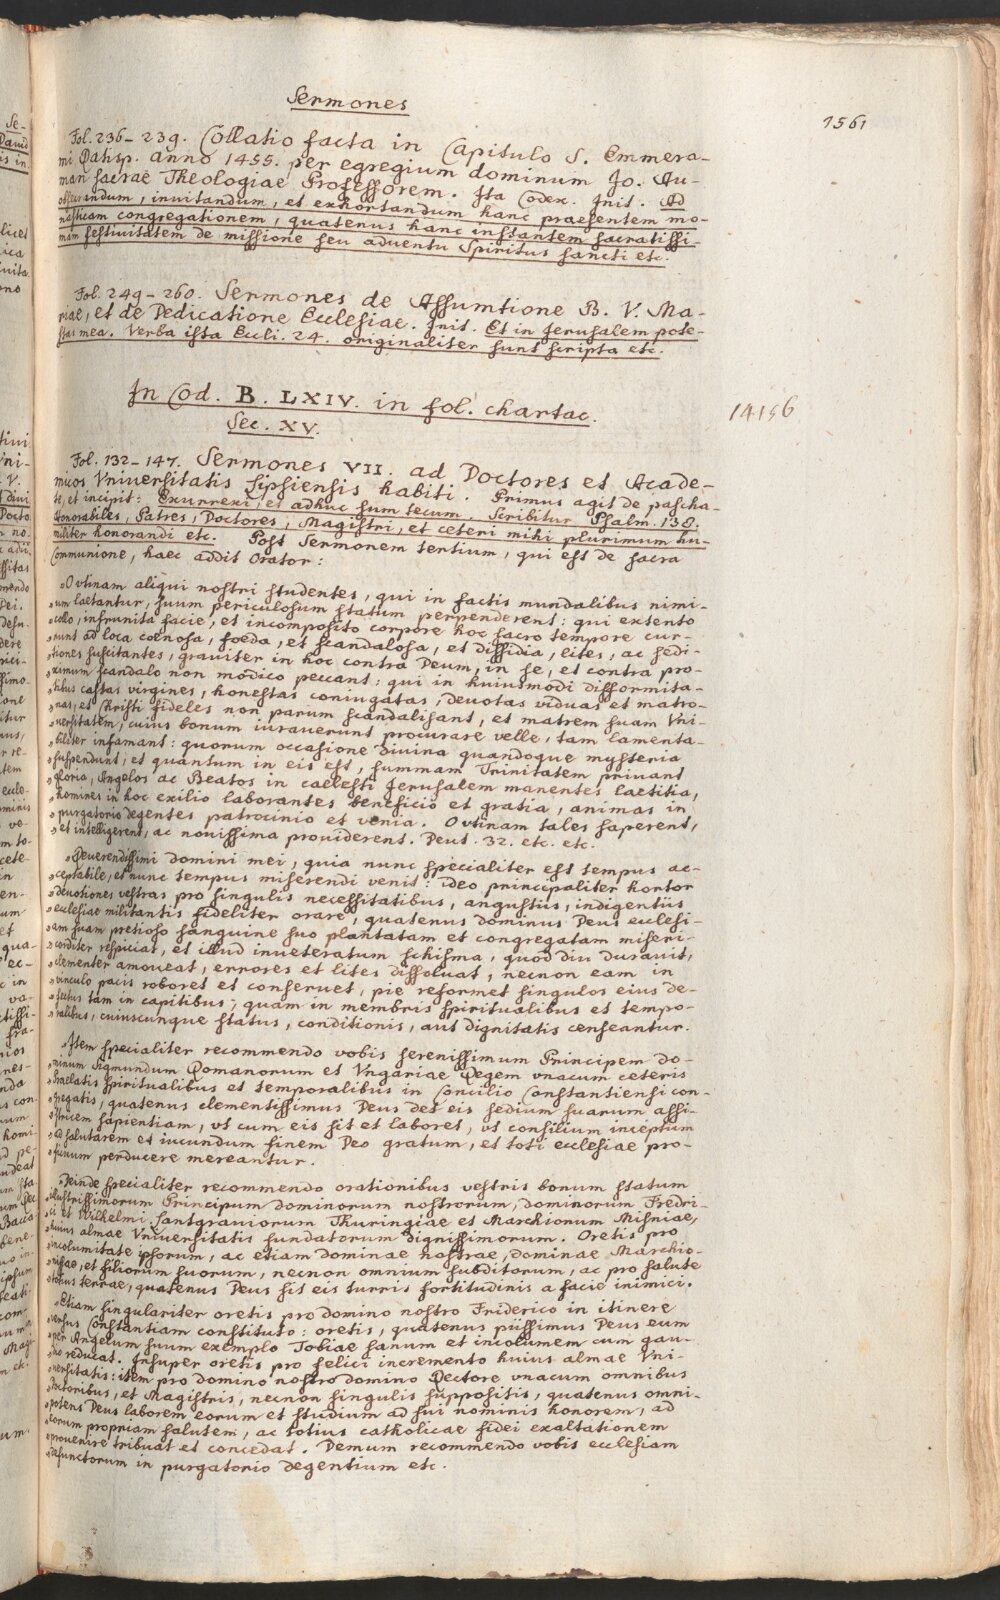 Sermones
1561
Fol. 236-239. Collatio facta in Capitulo S. Emmera-
mi Ratisp. anno 1455. per egregium dominum Jo. Au-
man sacrae Theologiae Professorem. Ita Codex. Init. Ad
obsecrandum, invitandum, et exhortandum hanc praesentem mo-
nasticam congregationem, quatenus hanc instantem sacratissi-
mam festivitatem de missione seu adventu Spiritus sancti etc.
Fol. 249-260. Sermones de Assumtione B. V. Ma-
riae, et de Dedicatione Ecclesiae. Init. Et in Jerusalem pote-
stas mea. Verba ista Eccli. 24. originaliter sunt scripta etc.
In Cod. B. LXIV. in fol. chartac.
Sec. XV.
14156
Fol. 132-147. Sermones VII. ad Doctores et Acade-
micos Vniversitatis Lipsiensis habiti. Primus agit de pascha-
te, et incipit: Exurrexi, et adhuc sum tecum. Scribitur Psalm. 138.
Honorabiles, Patres, Doctores, Magistri, et ceteri mihi plurimum hu-
militer honorandi etc. Post Sermonem tertium, qui est de sacra
Communione, haec addit Orator:
"O vtinam aliqui nostri studentes, qui in factis mundalibus nimi-
"um laetantur, suum periculosum statum perpenderent: qui extento
"collo, infrunita facie, et incomposito corpore hoc sacro tempore cur-
"runt ad loca coenosa, foeda, et scandalosa, et dissidia, lites, ac sedi-
"tiones suscitantes, graviter in hoc contra Deum, in se, et contra pro-
"ximum scandalo non modico peccant: qui in huiusmodi difformita-
"tibus castas virgines, honestas coniugatas, devotas viduas et matro-
"nas, et Christi fideles non parum scandalisant, et matrem suam Vni-
"versitatem, cuius bonum iuraverunt procurare velle, tam lamenta-
"biliter infamant: quorum occasione divina quandoque mysteria
"suspendunt, et quantum in eis est, summam Trinitatem privant
"gloria, Angelos ac Beatos in caelesti Jerusalem manentes laetitia,
"homines in hoc exilio laborantes beneficio et gratia, animas in
"purgatorio degentes patrocinio et venia. O vtinam tales saperent,
"et intelligerent, ac novissima providerent. Deut. 32. etc. etc.
"Reverendissimi domini mei, quia nunc specialiter est tempus ac-
"ceptabile, et nunc tempus miserendi venit: ideo principaliter hortor
"devotiones vestras pro singulis necessitatibus, angustiis, indigentiis
"ecclesiae militantis fideliter orare, quatenus dominus Deus ecclesi-
"am suam pretioso sanguine suo plantatam et congregatam miseri-
"corditer respiciat, et illud inveteratum schisma, quod diu duravit,
"clementer amoveat, errores et lites dissolvat, necnon eam in
"vinculo pacis roboret et conservet, pie reformet singulos eius de-
"fectus tam in capitibus, quam in membris spiritualibus et tempo-
"ralibus, cuiuscunque status, conditionis, aut dignitatis censeantur.
"Item specialiter recommendo vobis serenissimum Principem do-
"minum Sigmundum Romanorum et Vngariae Regem vnacum ceteris
"Praelatis spiritualibus et temporalibus in Concilio Constantiensi con-
"gregatis, quatenus clementissimus Deus det eis sedium suarum assi-
"stricem sapientiam, vt cum eis sit et labores, vt consilium inceptum
"ad salutarem et iucundum finem Deo gratum, et toti ecclesiae pro-
"ficuum perducere mereantur.
"Deinde specialiter recommendo orationibus vestris bonum statum
"illustrissimorum Principum dominorum nostrorum, dominorum Fredri-
"ci et Wilhelmi Lantgraviorum Thuringiae et Marchionum Misniae,
"huius almae Vniversitatis fundatorum dignissimorum. Oretis pro
"incolumitate ipsorum, ac etiam dominae nostrae, dominae Marchio-
"nissae, et filiorum suorum, necnon omnium subditorum, ac pro salute
"totius terrae, quatenus Deus sit eis turris fortitudinis a facie inimici.
"Etiam singulariter oretis pro domino nostro Friderico in itinere
"versus Constantiam constituto: oretis, quatenus piissimus Deus eum
"per Angelum suum exemplo Tobiae sanum et incolumem cum gau-
"dio reducat. Insuper oretis pro felici incremento huius almae Vni-
"versitatis: item pro domino nostro domino Rectore vnacum omnibus
"Doctoribus, et Magistris, necnon singulis suppositis, quatenus omni-
"potens Deus laborem eorum et studium ad sui nominis honorem, ad
"eorum propriam salutem, ac totius catholicae fidei exaltationem
"provenire tribuat et concedat. Demum recommendo vobis ecclesiam
"defunctorum in purgatorio degentium etc.